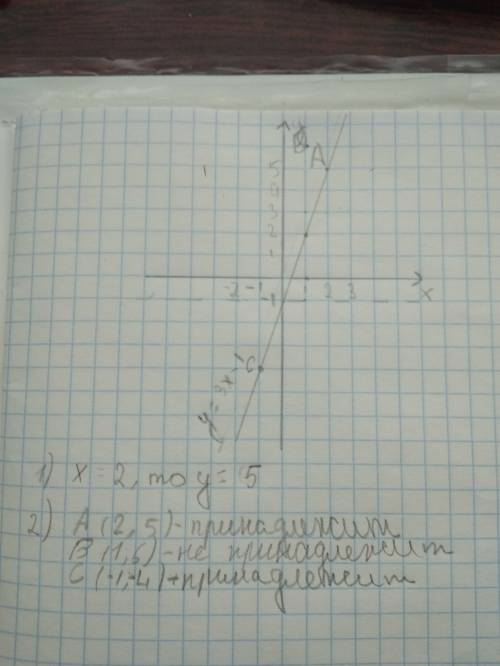 y
A
5
4
3
2
1
-2 -1 1 2 3
x
-1
C
y = 3x-1
1) x = 2, то y = 5
2) A (2, 5) - принадлежит
B (1, 6) - не принадлежит
C (-1, -4) - принадлежит